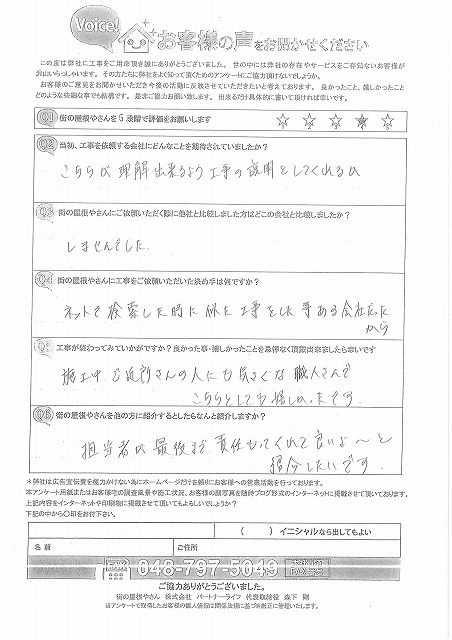 Voice!
お客様の声をお聞かせください
この度は弊社に工事をご用命頂き誠にありがとうございました。 世の中には弊社の存在やサービスをご存知ないお客様が
沢山いらっしゃいます。その方たちに弊社をよく知って頂くためのアンケートにご協力頂けないでしょうか。
お客様のご意見をお聞かせいただき今後の活動に反映させていただきたいと考えております。 良かったこと、嬉しかったこと
どのような些細な事でも結構です。 是非ご協力お願い致します。 出来るだけ具体的に書いて頂ければ幸いです。
Q1 街の屋根やさんを5段階で評価をお願いします ☆ ☆ ☆ ★ ☆
Q2 当初、工事を依頼する会社にどんなことを期待されていましたか?
こちらが理解出来るよう工事の説明をしてくれるか
Q3 街の屋根やさんにご依頼いただく際に他社と比較しました方はどこの会社と比較しましたか?
しませんでした
Q4 街の屋根やさんに工事をご依頼いただいた決め手は何ですか?
ネットで検索した時に似た工事をした事ある会社だった
から
Q5 工事が終わってみていかがですか?良かった事・嬉しかったことを忌憚なく頂戴出来ましたら幸いです
施工中ご近所さんの人にも気さくな職人さんで
こちらとしても嬉しかったです。
Q6 街の屋根やさんを他の方に紹介するとしたらなんと紹介しますか?
担当者が最後まで責任もってくれて良いよ〜と
紹介したいです。
*弊社は広告宣伝費を極力かけない為にホームページだけを頼りにお客様への営業活動を行っております。
本アンケート用紙またはお客様宅の調査風景や施工状況、お客様の顔写真を随時ブログ形式のインターネットに掲載させて頂いております。
上記内容をインターネットや印刷物に掲載させて頂いてもよろしいでしょうか?
下記の中から〇印をお付下さい。
( ) イニシャルなら出してもよい
名 前 ご住所
FAX 048-797-5049
ご協力ありがとうございました。
街の屋根やさん 株式会社 パートナーライフ 代表取締役 森下 剛
当アンケートで取得したお客様の個人情報は関係法規に基づき厳正に管理いたします。